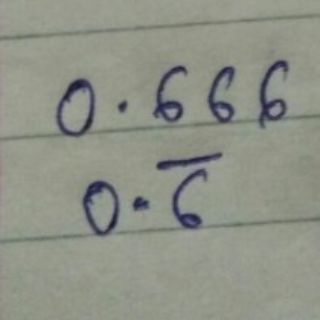 0.666
0.6̅